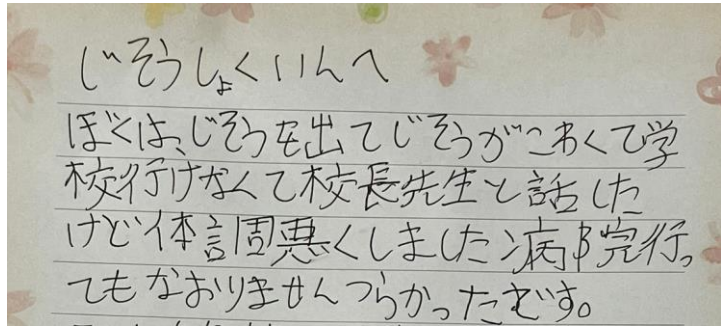 じそうしょくいんへ
ぼくは、じそうを出てじそうがこわくて学
校行けなくて校長先生と話した
けど体調悪くしました病院行っ
てもなおりませんつらかったです。